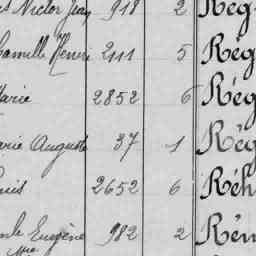 Victor Jean 918 2 Rég
Camille Henri 2111 5 Rég
Marie 2852 6 Rég
Marie Auguste 37 1 Rég
Louis 2652 6 Réh
Eugène 982 2 Rém